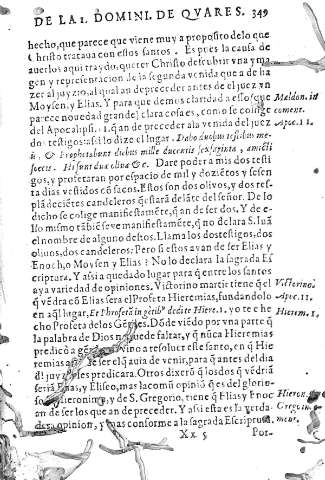 DE LA 1. DOMINI. DE QVARES. 349
hecho, que parece que viene muy a proposito de lo que
Christo trataua con estos santos. Es pues la causa de
auerlos aqui traydo, querer Christo descubrir vna yma
gen y representacion de la segunda venida que a de ha
zer al juyzio, al qual an de preceder antes de el juez yn
Moysen, y Elias. Y para que demos claridad a esso (que
parece nouedad grande) clara cosa es, como se colige
del Apocalips. 11. q̃ an de preceder a la venida del juez
dos testigos: assi lo dize el lugar. Dabo duobus testibus me-
is, & Prophetabunt diebus mille ducentis sexaginta, amicti
saccis. Hi sunt duæ oliuæ &c. Dare poder a mis dos testi
gos, y profetaran por espacio de mil y doziẽtos y sesen
ta dias vestidos cõ sacos. Estos son dos oliuos, y dos res-
plãdeciẽtes candeleros q̃ estarã delãte del señor. De lo
dicho se colige manifiestamẽte, q̃ an de ser dos. Y de e-
llo mismo tãbiẽ se ve manifiestamẽte, q̃ no declara S. Iuã
el nombre de alguno destos. Llama los dos testigos, dos
oliuos, dos candeleros: Pero si estos avan de ser Elias y
Enoch, o Moysen y Elias? No lo declara la sagrada Es
criptara. Y assi a quedado lugar para q̃ entre los santos
aya variedad de opiniones. Victorino martir tiene q̃ el
q̃ vẽdra cõ Elias sera el Profeta Hieremias, fundandolo
en aq̃l lugar, Et Prophetã in gẽtibus dedite Hiere. 1. yo te he
cho Profeta de los Gẽtiles. Dõde viẽdo por vna parte q̃
la palabra de Dios no puede faltar, y q̃ nũca Hieremias
predicò a gẽtiles, vino a resoluerse este santo, en q̃ Hie
remias a de ser el q̃ auia de venir, para q̃ antes del dia
del juyzio les predicara. Otros dixerõ q̃ los dos q̃ vẽdrã
serã Elias, y Eliseo, mas la comũ opiniõ q̃ es del glorio-
so Hieronimo, y de S. Gregorio, tiene q̃ Elias y Enoc
an de ser los que an de preceder. Y assi esta es la verda-
dera opinion, y mas conforme a la sagrada Escriptura.
Xx 5 Por-
Maldon. in
coment.
Apoc. 11.
Victorino
Apoc. 11.
Hierem. 1.
Hieron.
Gregorin.